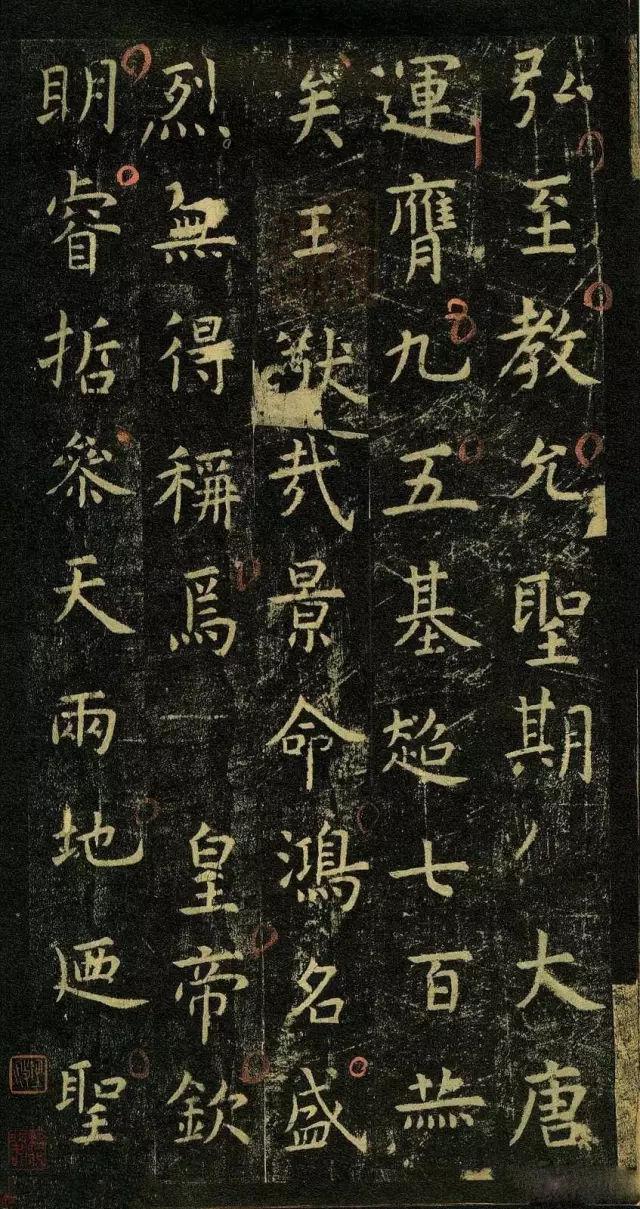 弘至教允聖期大唐
運膺九五基超七百
矣王猷哉景命鴻名盛
烈無得稱焉皇帝欽
明睿哲叅天兩地迺聖